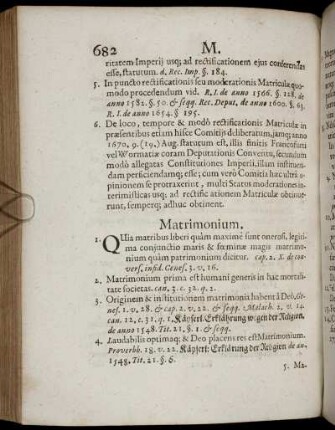 682 M.
ritatem Imperij usq; ad rectificationem ejus conferendas
esse, statutum. d. Rec. Imp. §. 184.
5. In puncto rectificationis seu moderationis Matriculæ quo-
modo procedendum vid. R. I. de anno 1566. §. 128. de
anno 1582. §. 50. & seqq. Rec. Deput. de anno 1600. §. 63.
R. I. de anno 1654. §. 195.
6. De loco, tempore & modò rectificationis Matriculæ in
præsentibus etiam hisce Comitijs deliberatum, jamq; anno
1670. 9. (19.) Aug. statutum est, illis finitis Francofurti
vel Wormatiæ coram Deputationis Conventu, secundùm
modò allegatas Constitutiones Imperij, illam instituen-
dam perficiendamq; esse; cum verò Comitia hæc ultrà o-
pinionem se protraxerint, multi Status moderationes in-
terimisticas usq; ad rectificationem Matriculæ obtinue-
runt, semperq; adhuc obtinent.
Matrimonium.
1. QUia matribus liberi quàm maximè sunt onerosi, legiti-
ma conjunctio maris & fœminæ magis matrimo-
nium quàm patrimonium dicitur. cap. 2. X. de con-
vers. infid. Genes. 3. v. 16.
2. Matrimonium prima est humani generis in hac mortali-
tate societas. can. 3. c. 32. q. 2.
3. Originem & institutionem matrimonia habent à Deo, Ge-
nes. 1. v. 28. & cap. 2. v. 22. & seqq. Malach. 2. v. 14.
can. 12. c. 32. q. 2. Käyserl. Erklährung wegen der Religion,
de anno 1548. Tit. 21. §. 1. & seqq.
4. Laudabilis optimaq; & Deo placens res est Matrimonium.
Proverb. 18. v. 22. Käyserl. Erklärung der Religion de an.
1548. Tit. 21. §. 6.
5. Ma-